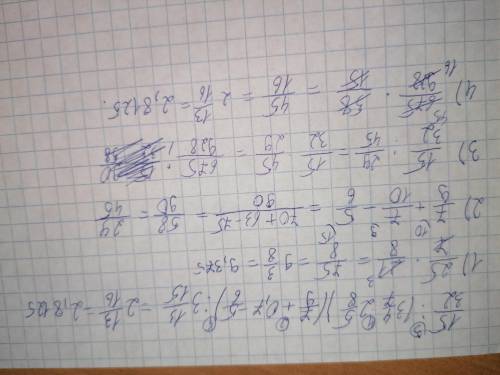 15/32 : (3 4/7 · 2 5/8)(7/9 + 0,7 - 5/6) : 3 13/15 = 2 13/16 = 2,8125
1) 25/7 · 21/8 = 75/8 = 9 3/8 = 9,375
2) 7/9 + 7/10 - 5/6 = 70+63-75/90 = 58/90 = 29/45
3) 15/32 : 29/45 = 15/32 · 45/29 = 675/928
4) 675/928 · 58/15 = 45/16 = 2 13/16 = 2,8125.